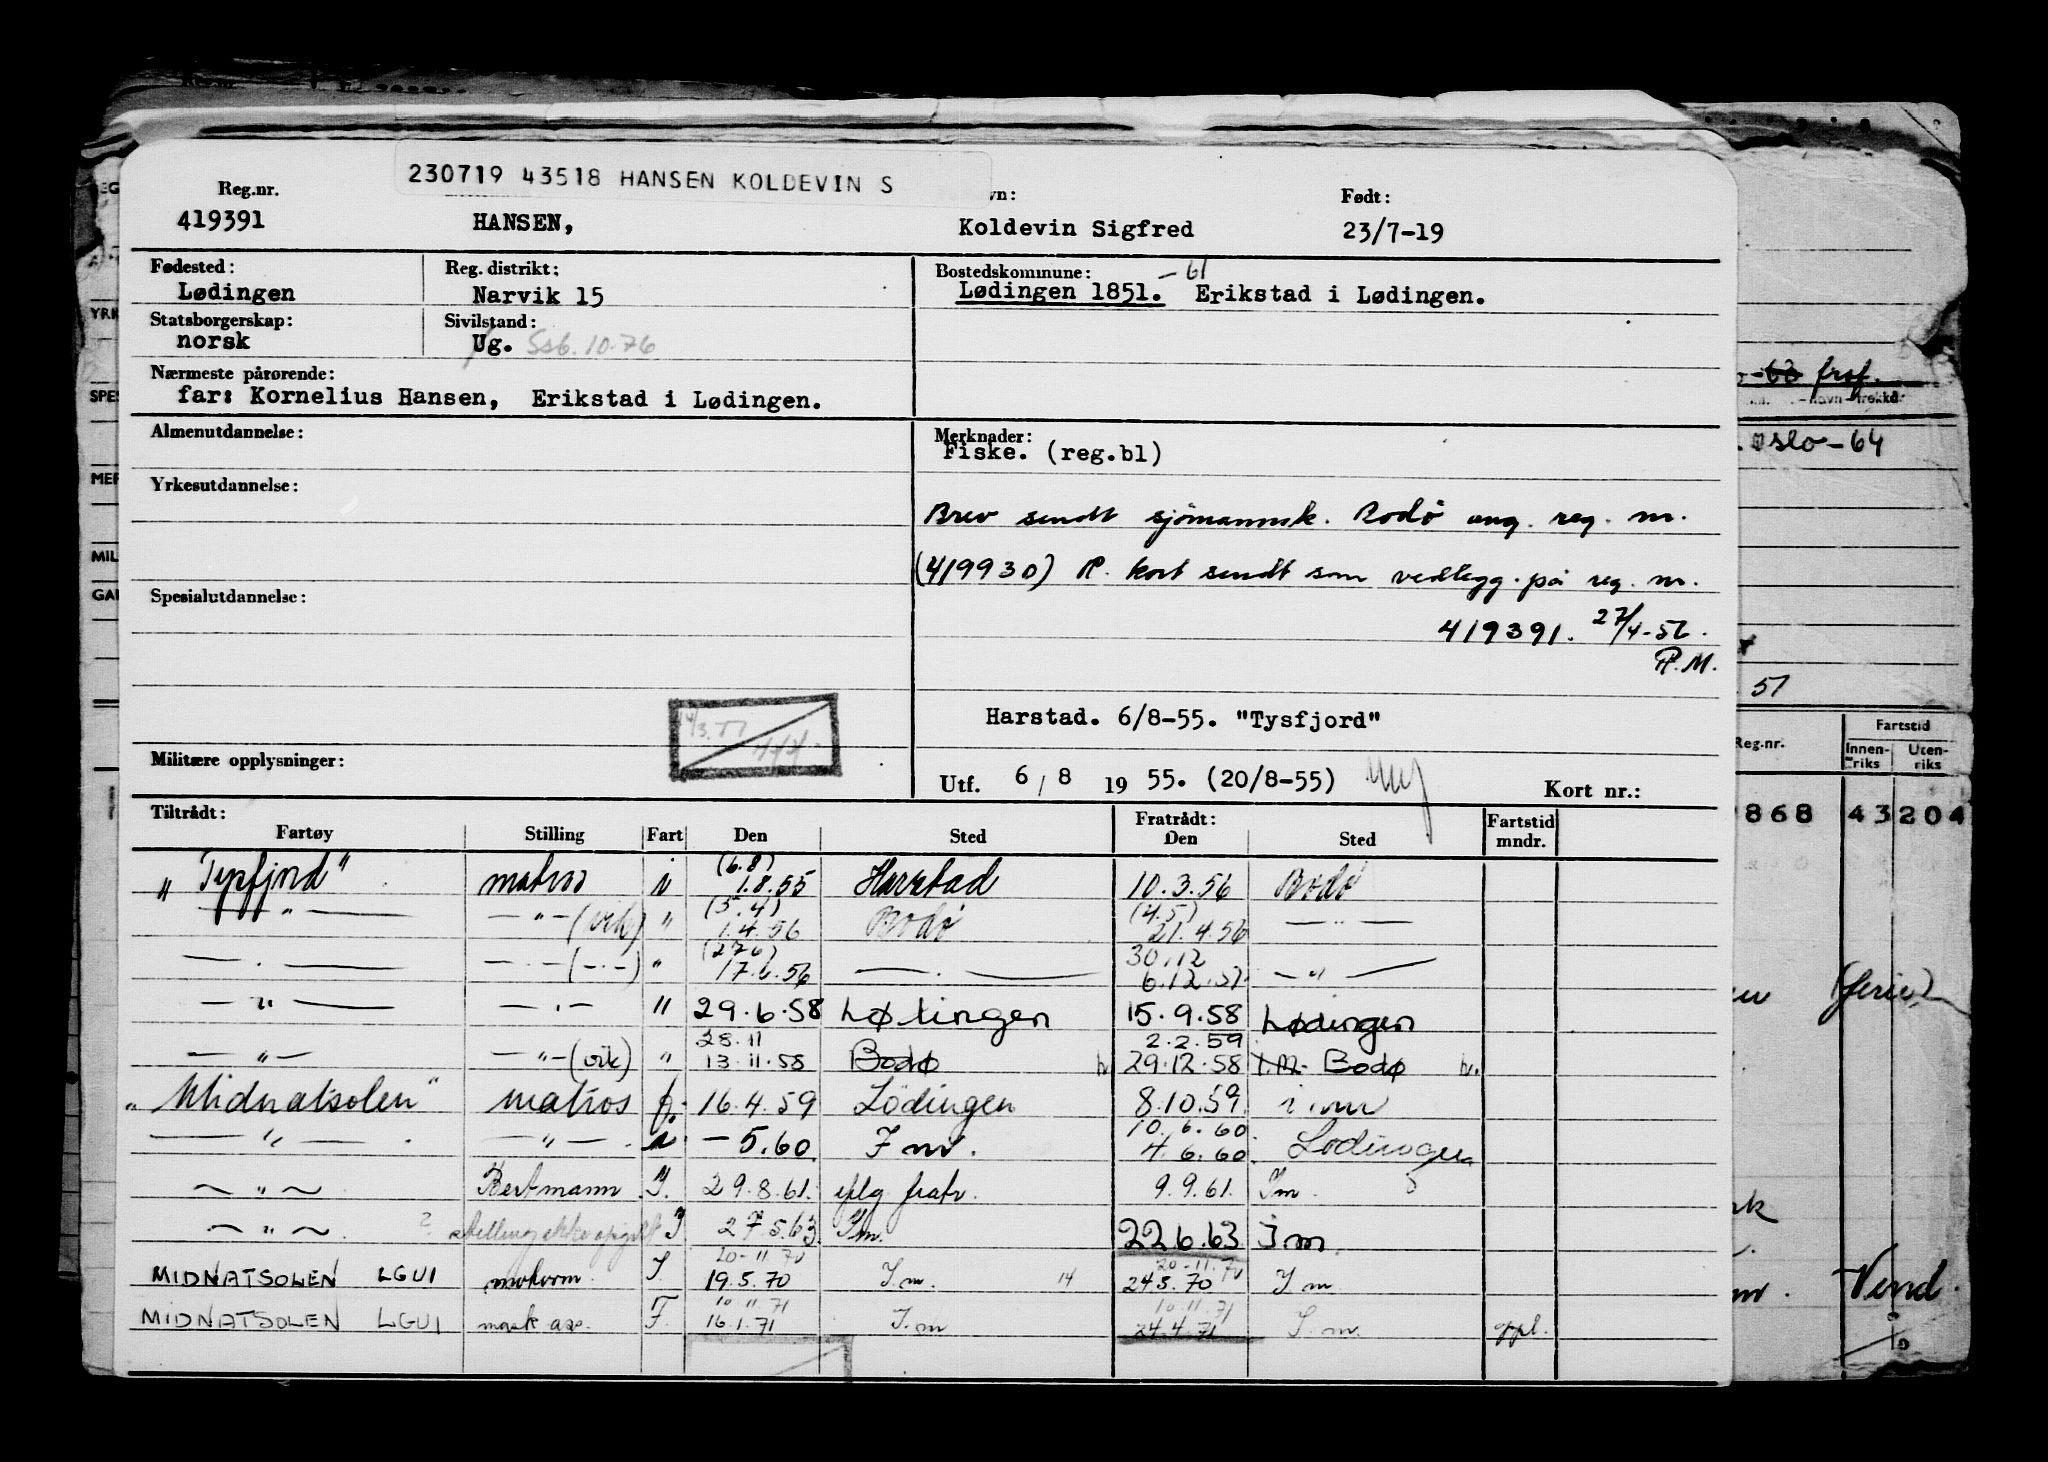 230719 43518 HANSEN KOLDEVIN S
Reg.nr. vn: Født:
419391 HANSEN, Koldevin Sigfred 23/7-19
Fødested: Reg. distrikt: Bostedskommune: -61
Lødingen Narvik 15 Lødingen 1851. Erikstad i Lødingen.
Statsborgerskap: Sivilstand:
norsk Ug. Ssb. 10.76
Nærmeste pårørende:
far: Kornelius Hansen, Erikstad i Lødingen.
Almenutdannelse: Merknader:
Fiske. (reg.bl)
Yrkesutdannelse:
Brev sendt sjømannsk. Bodø ang. reg. nr.
(419930) P. kort sendt som vedlegg på reg. nr.
Spesialutdannelse:
419391. 27/4-56.
P.M.
Harstad. 6/8-55. "Tysfjord"
Militære opplysninger:
Utf. 6/8 1955. (20/8-55) Kort nr.:
Tiltrådt: Fratrådt: Fartstid
Fartøy Stilling Fart Den Sted Den Sted mndr.
(6.8)
"Tysfjord" matros i 1.8.55 Harstad 10.3.56 Bodø
(5.4) (4.5)
— " — — " — (vik) " 1.4.56 Bodø 21.4.56 — " —
(27.6) 30.12
— " — — " — (— " —) " 17.6.56 — " — 6.12.57. — " —
— " — — " — " 29.6.58 Lødingen 15.9.58 Lødingen
28.11 2.2.59
— " — — " — (vik) " 13.11.58 Bodø 29.12.58 I.m. Bodø
"Midnatsolen" matros fr. 16.4.59 Lödingen 8.10.59. i. m
10.6.60.
— " — — " — i — 5.60. I m. 4.6.60. Lødingen
~ " ~ Bestmann I. 29.8.61. iflg fratr. 9.9.61. Im.
~ " ~ ? stilling ikke oppgitt I 27.5.63. Im. 22.6.63 Im.
20-11-70 20-11-70
MIDNATSOLEN LGUI motorm. I. 19.5.70 I.m. 14 24.5.70 I.m.
10.11.71 10.11.71
MIDNATSOLEN LGUI mask ass. F. 16.1.71 I.m 24.4.71 I.m. oppl.
YRK
SPES
MER
MIL
-63 frsf.
Oslo-64
51
Fartstid
Reg.nr. Innenriks Utenriks
868 43 204
(ferie)
Vend.